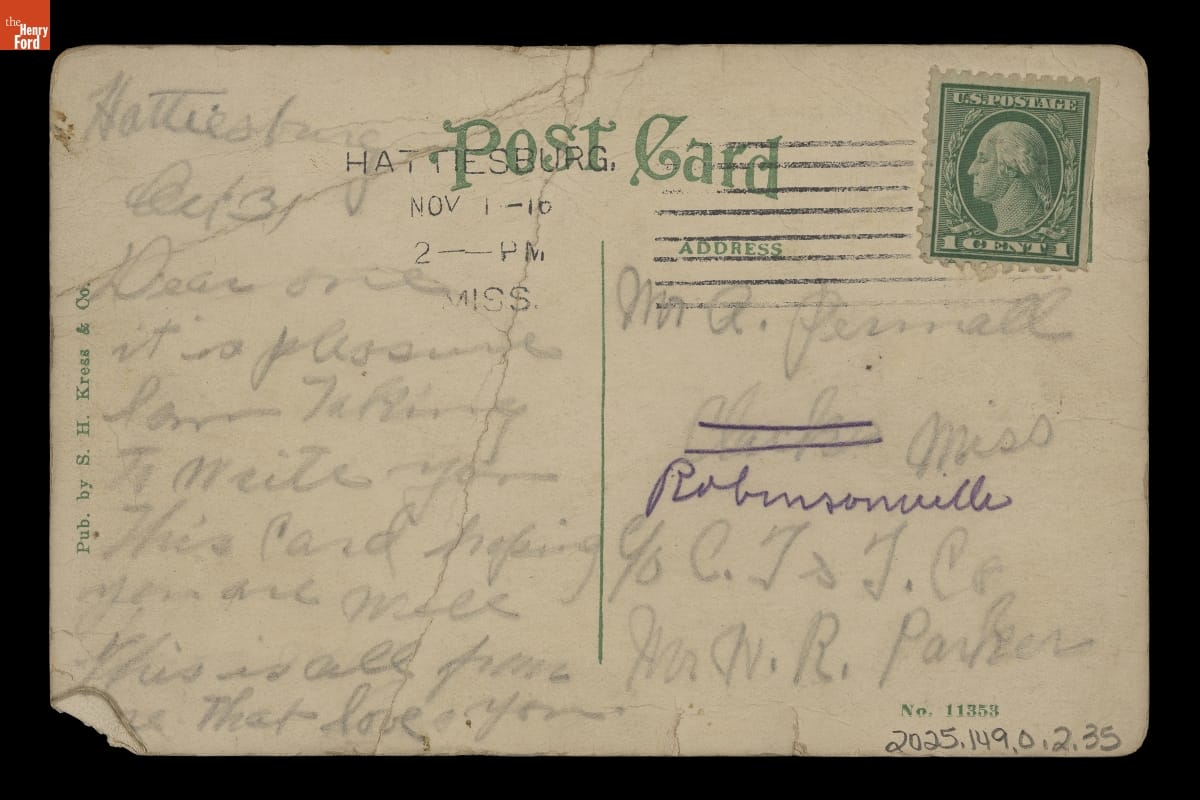 the
Henry
Ford
Post Card
HATTIESBURG,
NOV 1 -16
2 — PM
MISS.
U.S. POSTAGE
1 CENT 1
Hattiesburg
Oct 31
Dear one
it is pleasure
I am Taking
To Write you
This Card hoping
you are well
This is all from
that loves you
Pub. by S. H. Kress & Co.
ADDRESS
Mr A.
Miss
Robinsonville
c/o C. T & T. Co
Mr W. R. Parker
No. 11353
2025.149.0.2.35